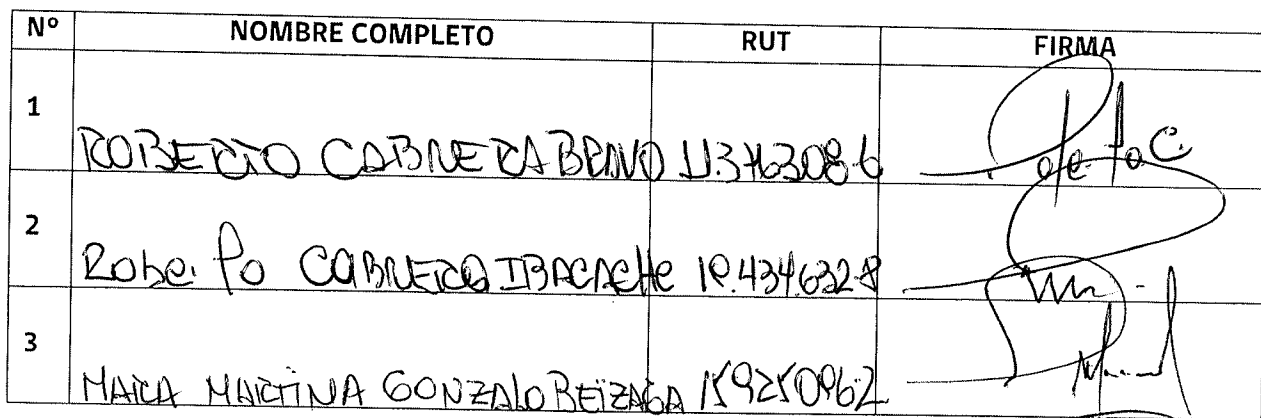 Nº NOMBRE COMPLETO RUT FIRMA
1 ROBERTO CABRERA BRAVO 11.376308-6
2 Roberto CABRERA IBACACHE 19.434.632-8
3 MARCA MARTINA GONZALO BEIZAGA 15925096-2